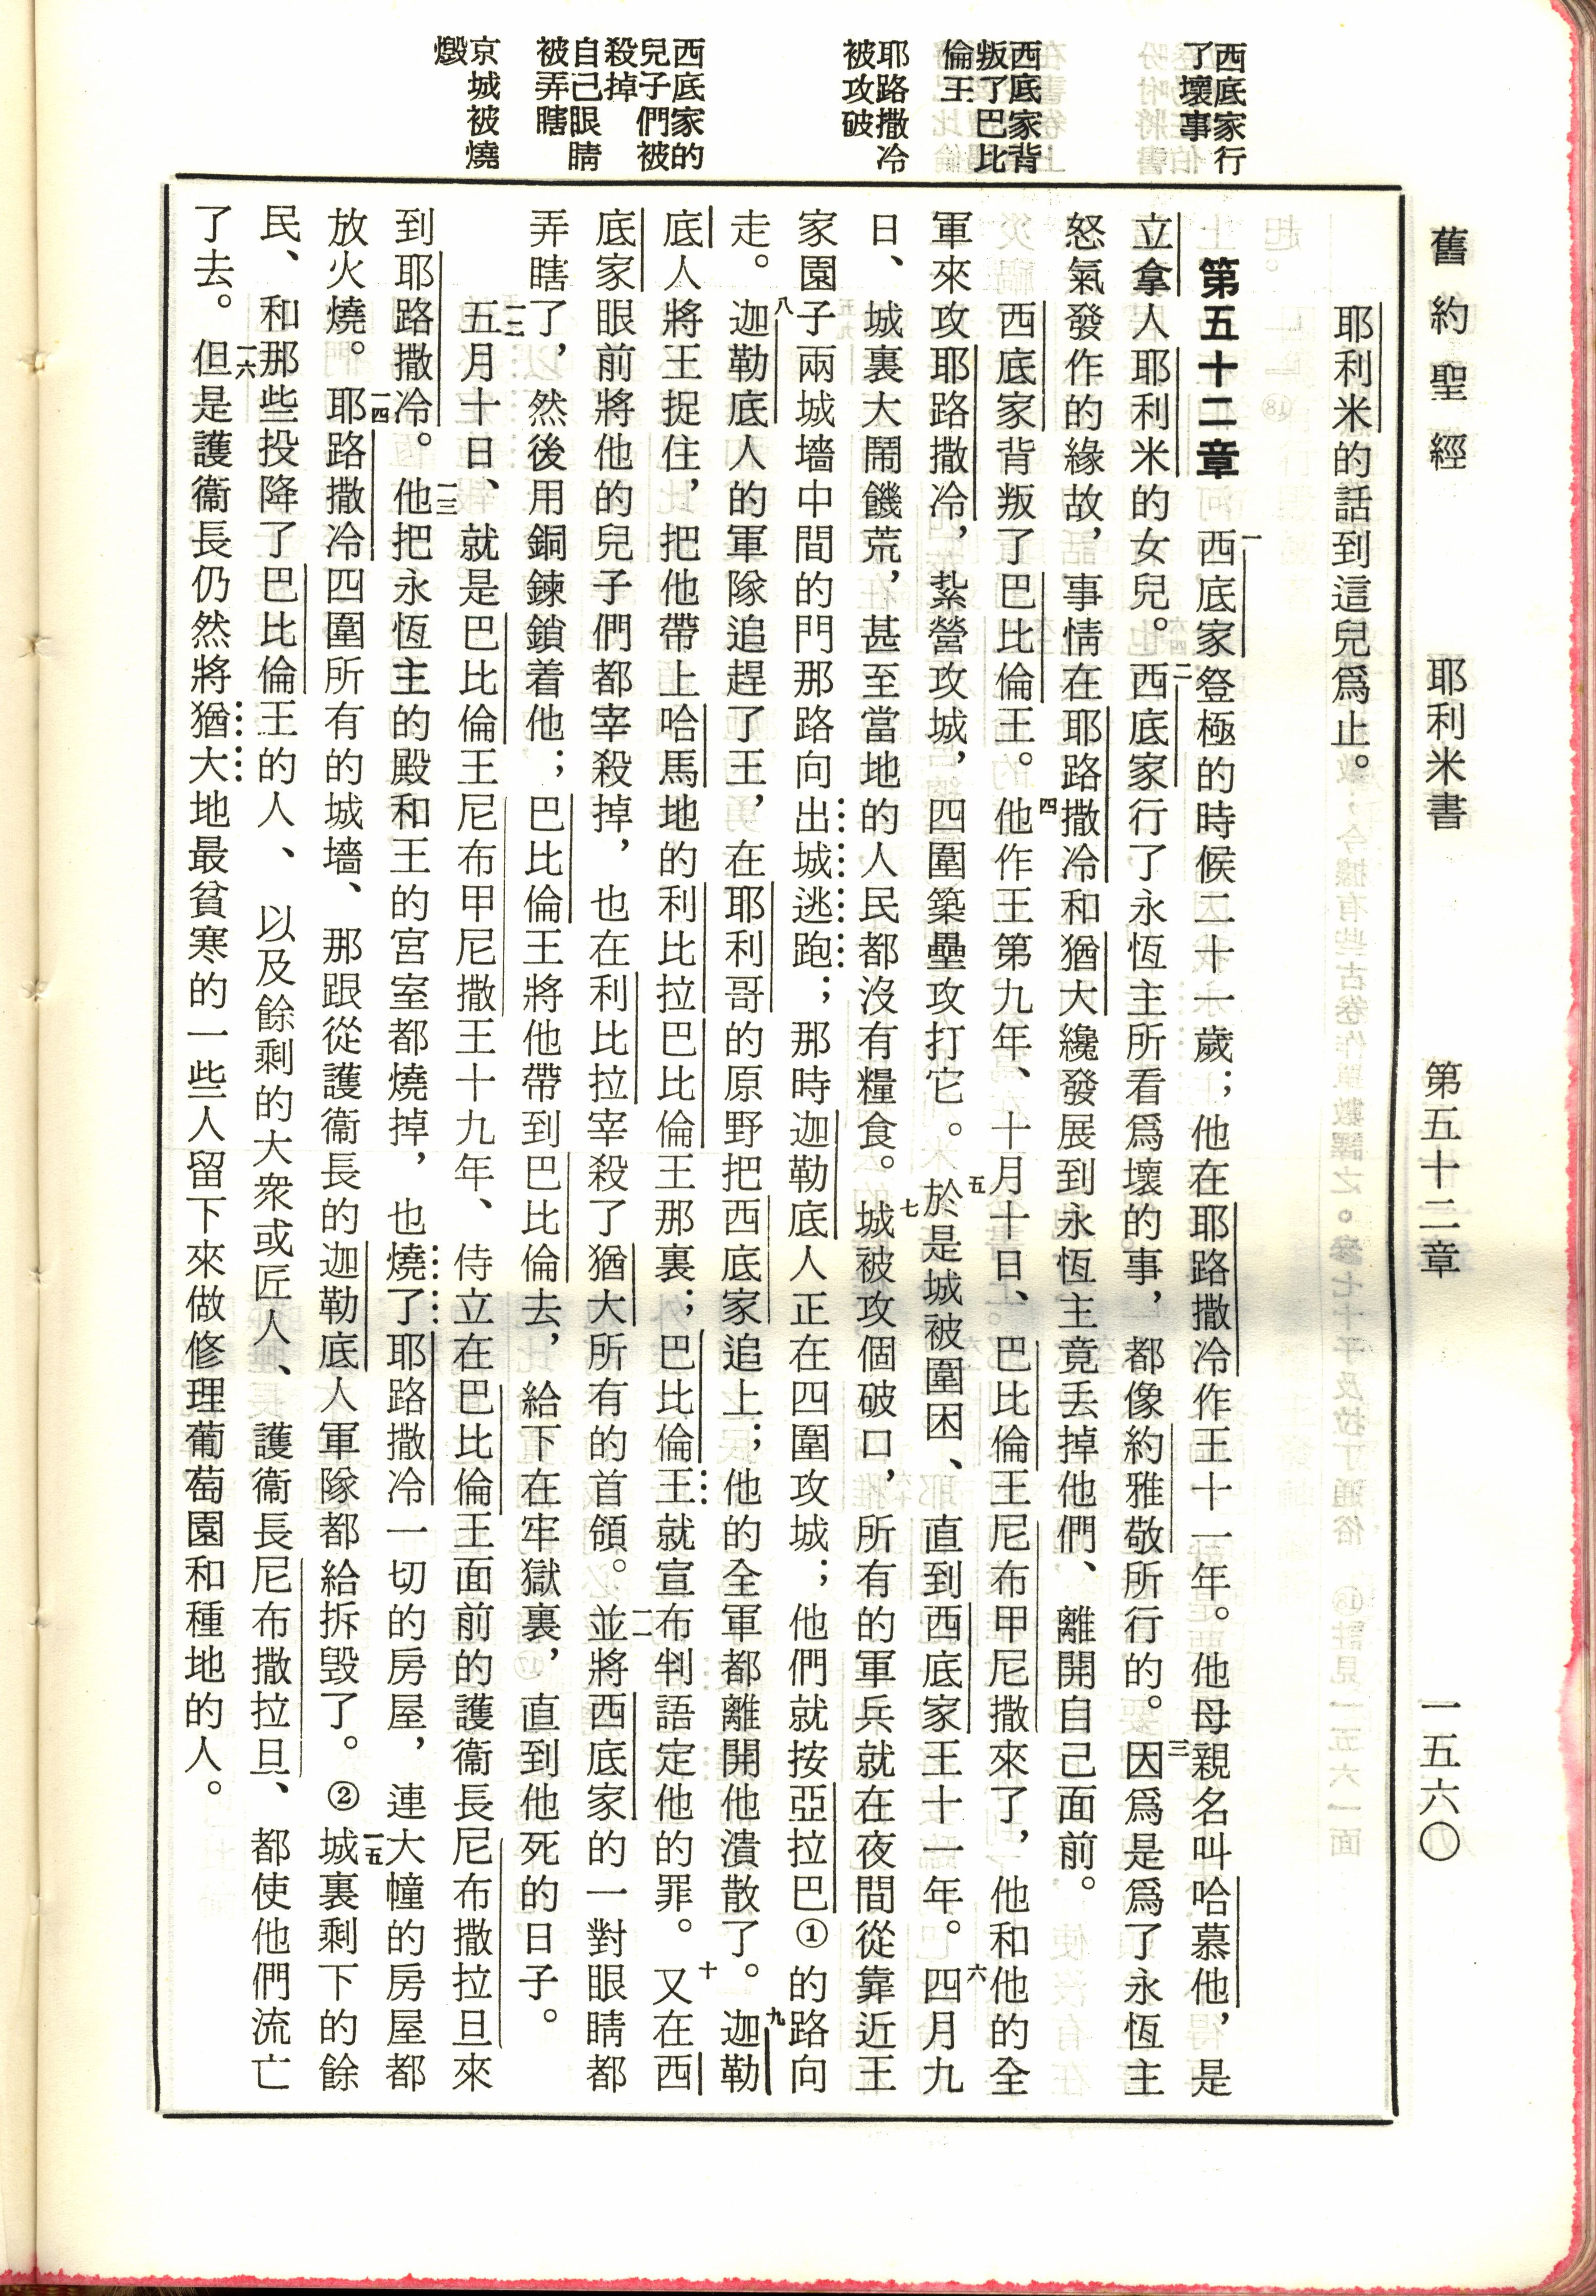 舊約聖經　耶利米書　第五十二章　一五六〇
西底家行
了壞事
西底家背
叛了巴比
倫王
耶路撒冷
被攻破
西底家的
兒子們被
殺掉
自己眼睛
被弄瞎
京城被燒
燬
耶利米的話到這兒爲止。
第五十二章　一西底家登極的時候二十一歲；他在耶路撒冷作王十一年。他母親名叫哈慕他，是
立拿人耶利米的女兒。二西底家行了永恆主所看爲壞的事，都像約雅敬所行的。三因爲是爲了永恆主
怒氣發作的緣故，事情在耶路撒冷和猶大纔發展到永恆主竟丟掉他們、離開自己面前。
西底家背叛了巴比倫王。四他作王第九年、十月十日、巴比倫王尼布甲尼撒來了，他和他的全
軍來攻耶路撒冷，紮營攻城，四圍築壘攻打它。五於是城被圍困、直到西底家王十一年。六四月九
日、城裏大鬧饑荒，甚至當地的人民都沒有糧食。七城被攻個破口，所有的軍兵就在夜間從靠近王
家園子兩城墻中間的門那路向出城逃跑；那時迦勒底人正在四圍攻城；他們就按亞拉巴①的路向
走。八迦勒底人的軍隊追趕了王，在耶利哥的原野把西底家追上；他的全軍都離開他潰散了。九迦勒
底人將王捉住，把他帶上哈馬地的利比拉巴比倫王那裏；巴比倫王就宣布判語定他的罪。十又在西
底家眼前將他的兒子們都宰殺掉，也在利比拉宰殺了猶大所有的首領。一一並將西底家的一對眼睛都
弄瞎了，然後用銅鍊鎖着他；巴比倫王將他帶到巴比倫去，給下在牢獄裏，直到他死的日子。
一二五月十日、就是巴比倫王尼布甲尼撒王十九年、侍立在巴比倫王面前的護衞長尼布撒拉旦來
到耶路撒冷。一三他把永恆主的殿和王的宮室都燒掉，也燒了耶路撒冷一切的房屋，連大幢的房屋都
放火燒。一四耶路撒冷四圍所有的城墻、那跟從護衞長的迦勒底人軍隊都給拆毀了。②一五城裏剩下的餘
民、和那些投降了巴比倫王的人、以及餘剩的大衆或匠人、護衞長尼布撒拉旦、都使他們流亡
了去。一六但是護衞長仍然將猶大地最貧寒的一些人留下來做修理葡萄園和種地的人。